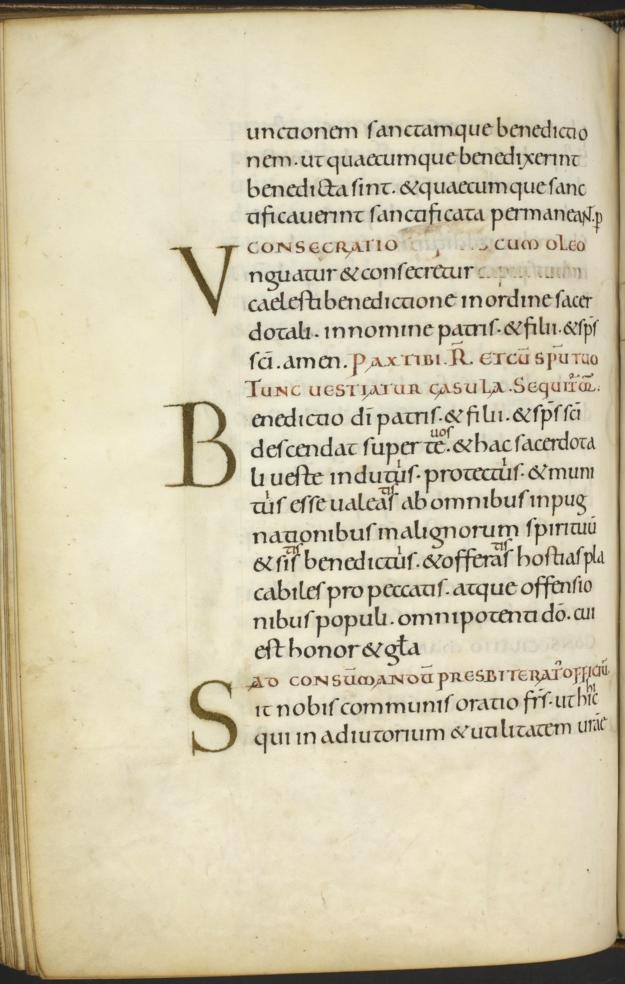 unctionem sanctamque benedictio
nem. ut quaecumque benedixerint
benedicta sint. & quaecumque sanc
tificaverint sanctificata permaneaN. p
CONSECRATIO CUM OLEO
Vnguatur & consecretur
caelesti benedictione in ordine sacer
dotali. in nomine patris. & filii. & sp̅s
sc̅i. amen. PAX TIBI. R̅. ET CU̅ SPU̅ TUO
TUNC VESTIATUR CASULA. Sequit̅
Benedictio di̅ patris. & filii. & sp̅s sc̅i
uos
descendat super te. & hac sacerdota
li ueste indutus. protectus. & muni
tus esse ualeas ab omnibus inpug
nationibus malignorum spirituu̅
& sis benedictus. & offeras hostias pla
cabiles pro peccatis. atque offensio
nibus populi. omnipotenti do̅. cui
est honor & gl̅a
AD CONSUMANDU̅ PRESBITERAT̅ OFFICIU̅
Sit nobis communis oratio fr̅s. ut hic
qui in adiutorium & utilitatem ur̅ae